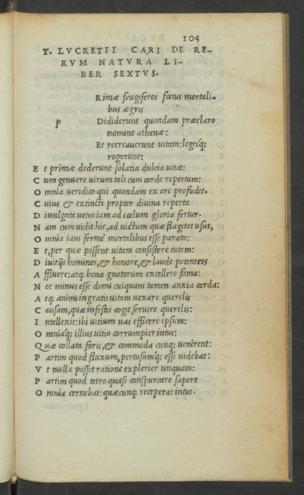 104
T. LVCRETII CARI DE RE-
RVM NATVRA LI-
BER SEXTVS.
Rimæ frugiferos fœtus mortali-
bus ægris
P Dididerunt quondam præclaro
nomine athenæ:
Et recreauerunt uitam: legesq;
rogarunt:
E t primæ dederunt solatia dulcia uitæ:
C um genuere uirum tali cum corde repertum:
O mnia ueridico qui quondam ex ore profudit.
C uius & extincti propter diuina reperta
D iuulgata uetus iam ad cœlum gloria fertur.
N am cum uidit hic, ad uictum quæ flagitet usus,
O mnia iam ferme mortalibus esse parata:
E t, per quæ possent uitam consistere tutam:
D iuitijs homines, & honore, & laude potenteis
A ffluere: atq; bona gnatorum excellere fama:
N ec minus esse domi cuiquam tamen anxia corda:
A tq; animi ingratis uitam uexare querelis
C ausam, quæ infestis cogit seruire querelis:
I ntellexit: ibi uitium uas efficere ipsum:
O mniaq; illius uitio corrumpier intus:
Q uæ collata foris, & commoda cunq; uenirent:
P artim quod fluxum, pertusumq; esse uidebat:
V t nulla posset ratione explerier unquam:
P artim quod tetro quasi conspurcare sapore
O mnia cernebat: quæcunq; receperat intus.